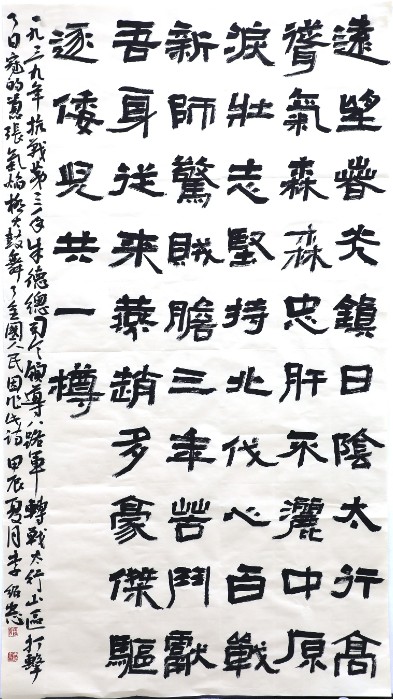 遠望春光鎮日陰太行高
聳氣森森忠肝不灑中原
淚壯志堅持北伐心百戰
新師驚賊膽三年苦鬥獻
吾身從來燕趙多豪傑驅
逐倭兒共一樽
一九三九年抗戰第三年朱德總司令領導八路軍轉戰太行山區打擊
了日寇的囂張氣焰極大鼓舞了全國人民因作此詩 甲辰夏月李紹